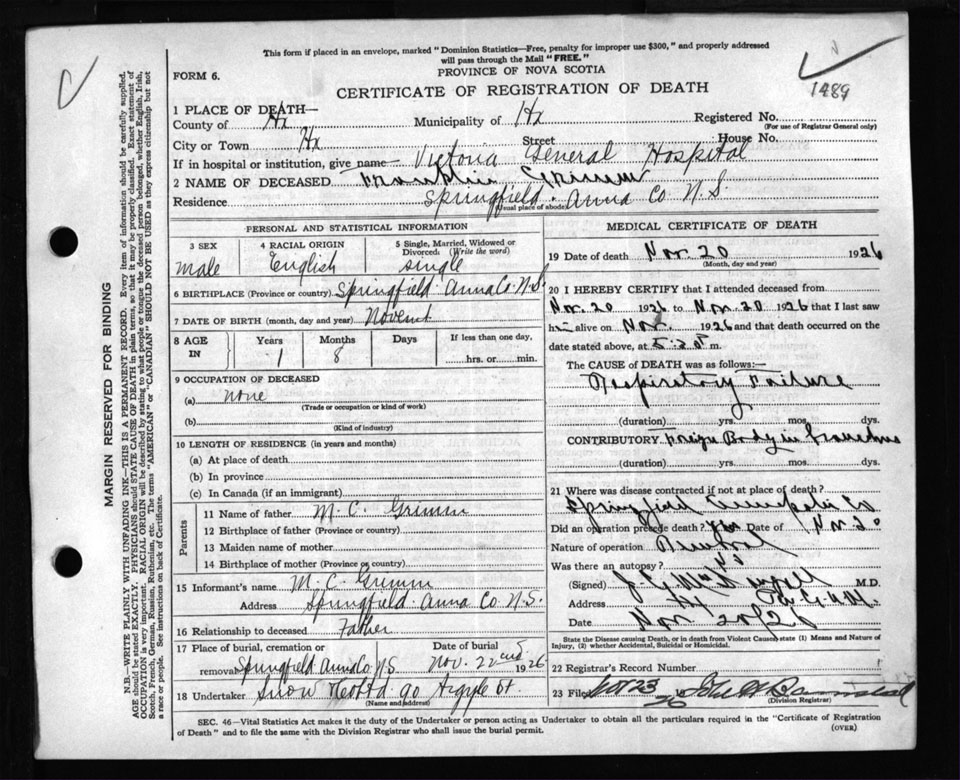 This form if placed in an envelope, marked "Dominion Statistics—Free, penalty for improper use $300," and properly addressed
will pass through the Mail "FREE."
PROVINCE OF NOVA SCOTIA
FORM 6.
1489
CERTIFICATE OF REGISTRATION OF DEATH
1 PLACE OF DEATH—
County of Hx Municipality of Hx Registered No.
(For use of Registrar General only)
City or Town Hx Street House No.
If in hospital or institution, give name— Victoria General Hospital
2 NAME OF DECEASED Franklin Grimm
Residence Springfield. Anna Co N.S
(Usual place of abode)
PERSONAL AND STATISTICAL INFORMATION
3 SEX
male
4 RACIAL ORIGIN
English
5 Single, Married, Widowed or Divorced. (Write the word)
single
6 BIRTHPLACE (Province or country) Springfield. Anna Co. N.S.
7 DATE OF BIRTH (month, day and year)
8 AGE IN
Years 1
Months 8
Days
If less than one day,
hrs. or min.
9 OCCUPATION OF DECEASED
(a) none
(Trade or occupation or kind of work)
(b)
(Kind of industry)
10 LENGTH OF RESIDENCE (in years and months)
(a) At place of death
(b) In province
(c) In Canada (if an immigrant)
Parents
11 Name of father M. C. Grimm
12 Birthplace of father (Province or country)
13 Maiden name of mother
14 Birthplace of mother (Province or country)
15 Informant's name M. C. Grimm
Address Springfield. Anna Co N.S.
16 Relationship to deceased Father
17 Place of burial, cremation or removal Springfield Anna Co N.S
Date of burial Nov. 22nd 1926
18 Undertaker Snow & Co Ltd. 90 Argyle St.
(Name and address)
MEDICAL CERTIFICATE OF DEATH
19 Date of death Nov. 20 1926
(Month, day and year)
20 I HEREBY CERTIFY that I attended deceased from
Nov. 20 1926 to Nov. 20 1926 that I last saw
him alive on Nov. 1926 and that death occurred on
date stated above, at m.
The CAUSE OF DEATH was as follows:—
Respiratory Failure
(duration) yrs. mos. dys.
CONTRIBUTORY Foreign Body in
(duration) yrs. mos. dys.
21 Where was disease contracted if not at place of death?
Springfield Annapolis Co
Did an operation precede death? yes Date of Nov 20
Nature of operation
Was there an autopsy? No
(Signed) M.D.
Address Hx
Date Nov 20/26
State the Disease causing Death, or in death from Violent Causes, state (1) Means and Nature of
Injury, (2) whether Accidental, Suicidal or Homicidal.
22 Registrar's Record Number
23 Filed Nov 23 19 26
(Division Registrar)
SEC. 46—Vital Statistics Act makes it the duty of the Undertaker or person acting as Undertaker to obtain all the particulars required in the "Certificate of Registration
of Death" and to file the same with the Division Registrar who shall issue the burial permit.
(OVER)
MARGIN RESERVED FOR BINDING
N.B.—WRITE PLAINLY WITH UNFADING INK—THIS IS A PERMANENT RECORD. Every item of information should be carefully supplied.
AGE should be stated EXACTLY. PHYSICIANS should STATE CAUSE OF DEATH in plain terms, so that it may be properly classified. Exact statement of
OCCUPATION is very important. RACIAL ORIGIN will be described by stating to what people or tongue the deceased person belonged, whether English, Irish,
Scotch, French, German, Russian, Ruthenian, etc. The terms "AMERICAN" or "CANADIAN" SHOULD NOT BE USED as they express citizenship but not
a race or people. See instructions on back of Certificate.